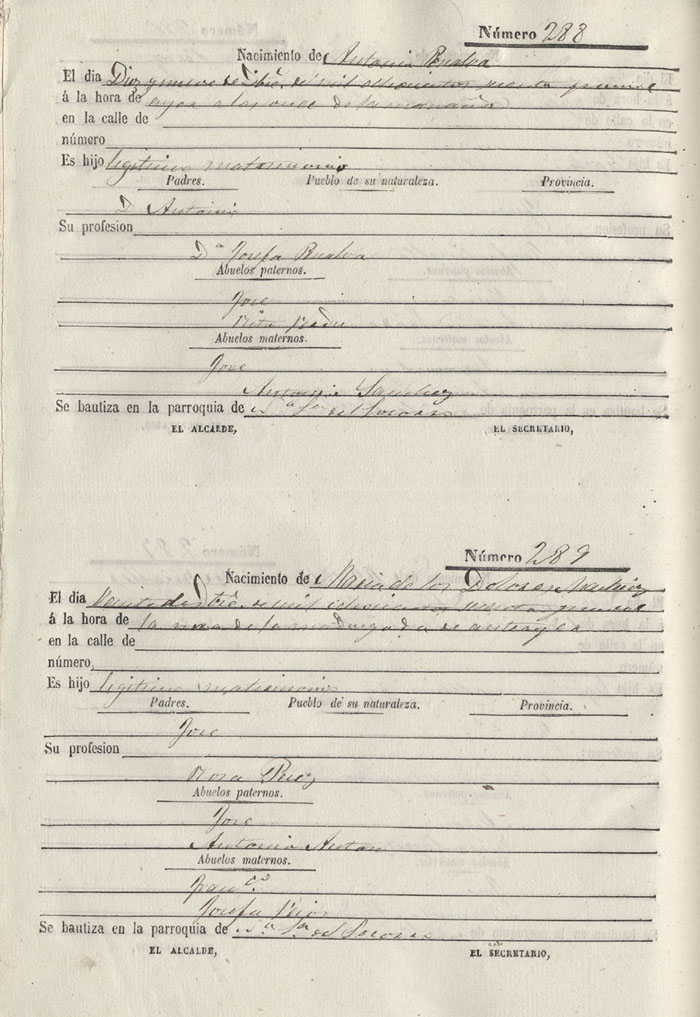 Número 288
Nacimiento de Antonia
El dia Diez y nueve de de mil ochocientos sesenta y
á la hora de ayer a las once de la mañana
en la calle de
número
Es hijo legitimo matrimonio
Padres. Pueblo de su naturaleza. Provincia.
D Antonio
Su profesion
Dª Josefa
Abuelos paternos.
Jose
Rita
Abuelos maternos.
Jose
Antonia Sanchez
Se bautiza en la parroquia de Nª Sª del Socorro
EL ALCALDE, EL SECRETARIO,
Número 289
Nacimiento de Maria de los Dolores
El dia Veinte de de mil ochocientos sesenta y
á la hora de la una de la madrugada de
en la calle de
número
Es hijo legitimo matrimonio
Padres. Pueblo de su naturaleza. Provincia.
Jose
Su profesion
Rosa
Abuelos paternos.
Jose
Antonia Anton
Abuelos maternos.
Franᶜᵒ
Josefa
Se bautiza en la parroquia de Nª Sª del Socorro
EL ALCALDE, EL SECRETARIO,